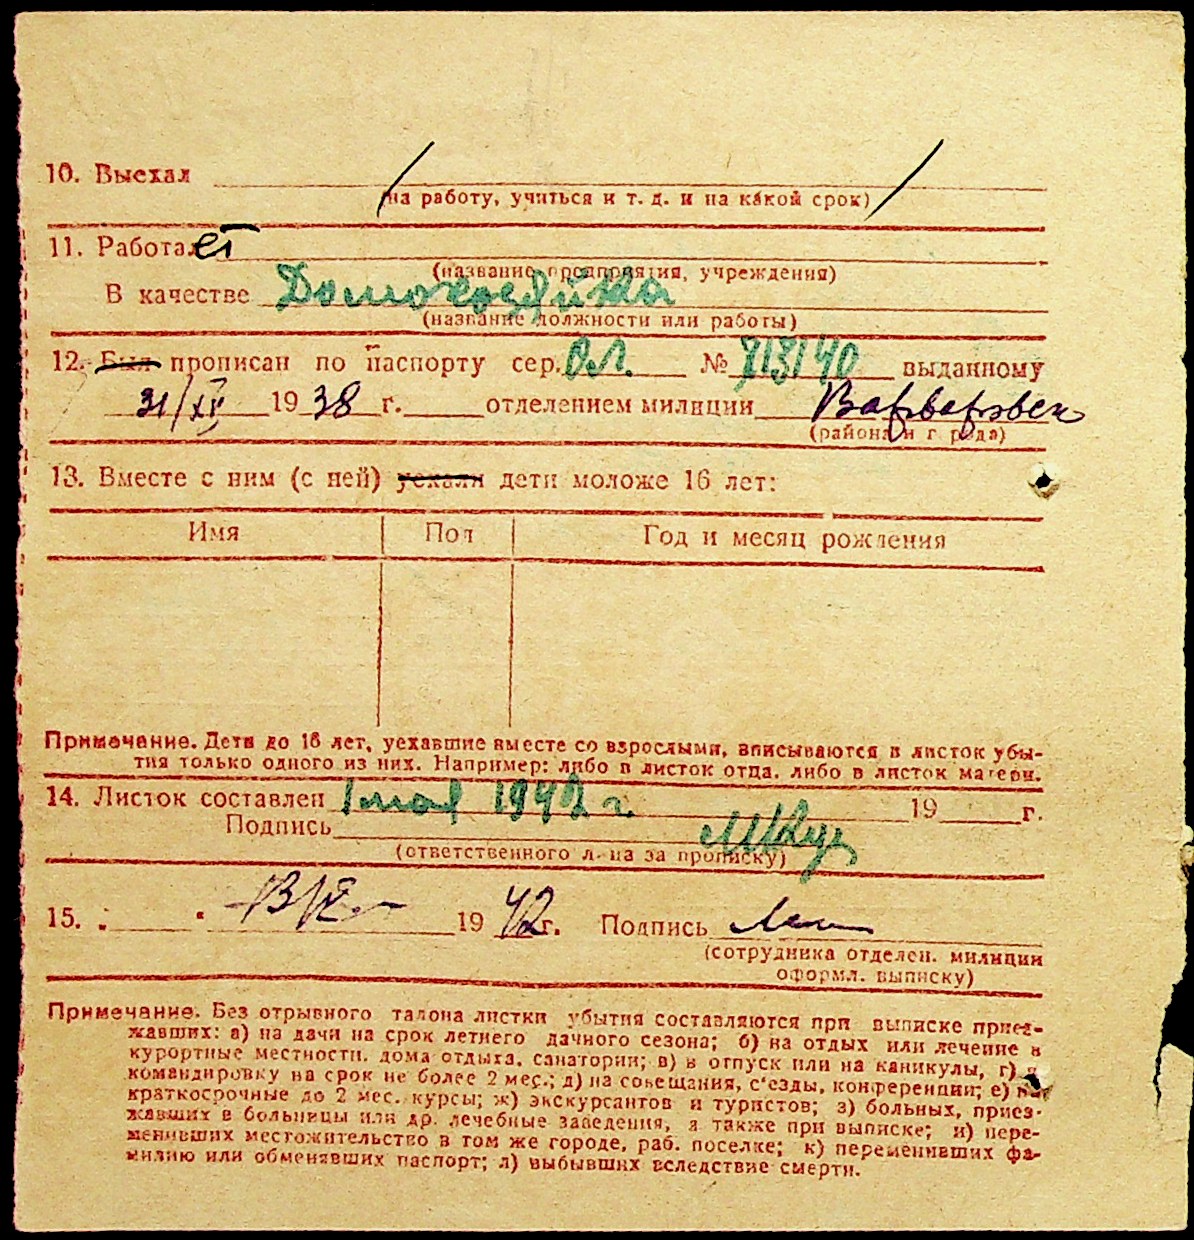 10. Выехал
(на работу, учиться и т. д. и на какой срок)
11. Работает
(название предприятия, учреждения)
В качестве Домохозяйка
(название должности или работы)
12. Был прописан по паспорту сер. № 713140 выданному
31/XII 1938 г. отделением милиции
(района и города)
13. Вместе с ним (с ней) уехали дети моложе 16 лет:
Имя Пол Год и месяц рождения
Примечание. Дети до 16 лет, уехавшие вместе со взрослыми, вписываются в листок убы-
тия только одного из них. Например: либо в листок отца, либо в листок матери.
14. Листок составлен 1 мая 1942 г. 19 г.
Подпись
(ответственного л-ца за прописку)
15. 1942 г. Подпись
(сотрудника отделен. милиции
оформл. выписку)
Примечание. Без отрывного талона листки убытия составляются при выписке приез-
жавших: а) на дачи на срок летнего дачного сезона; б) на отдых или лечение в
курортные местности, дома отдыха, санатории; в) в отпуск или на каникулы, г) в
командировку на срок не более 2 мес.; д) на совещания, с'езды, конференции; е) на
краткосрочные до 2 мес. курсы; ж) экскурсантов и туристов; з) больных, приез-
жавших в больницы или др. лечебные заведения, а также при выписке; и) пере-
менивших местожительство в том же городе, раб. поселке; к) переменивших фа-
милию или обменявших паспорт; л) выбывших вследствие смерти.